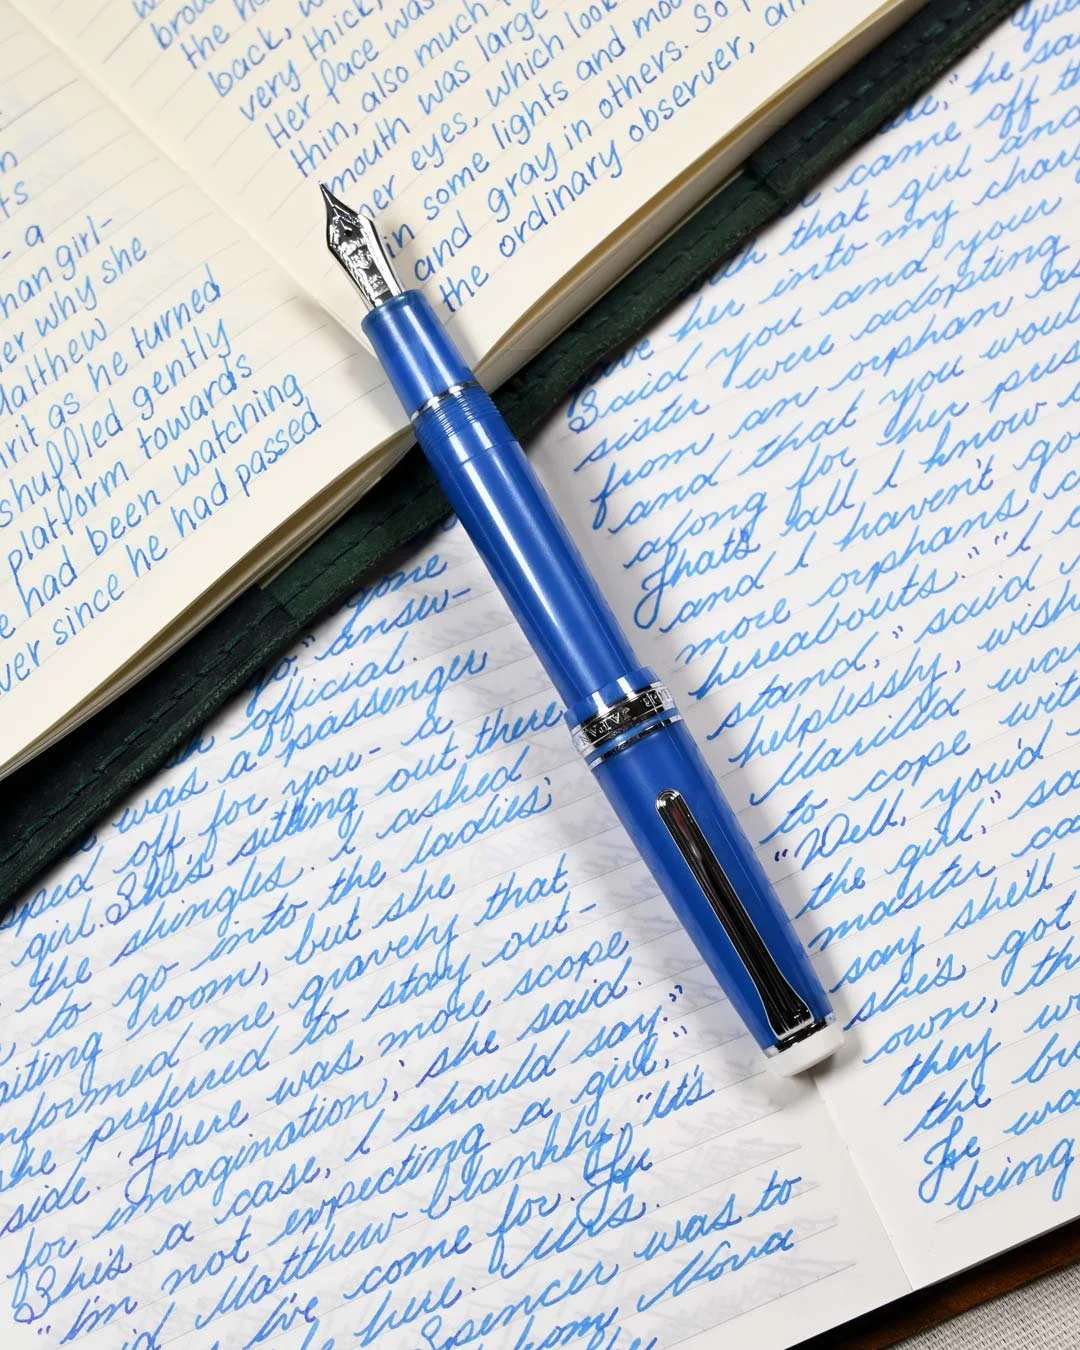 the ha
back, w
very thick,
Her face was
thin, also much
mouth was large
her eyes, which look
in some lights and moo
and gray in others. So
the ordinary observer, an
a
han girl-
er why she
Matthew
irit as he turned
shuffled gently
platform towards
e had been watching
ver since he had passed
gone
answ-
official.
was a passenger
ped off for you- a
girl. She's sitting out there
the shingles. I asked
to go into the ladies'
aiting room, but she
nformed me gravely that
she preferred to stay out-
side. There was more scope
for imagination,' she said.
She's a case, I should say."
"I'm not expecting a girl,"
id Matthew blankly. "It's
I've come for. He
here. Mrs.
Spencer was to
from Nova
he sa
came off th
that girl and
her into my charg
Said you and your
sister were adopting
from an orphan as
and that you woul
along for her pres
That's all I know
and I haven't got
more orphans c
hereabouts." "I
stand," said
helplessly, wish
Marilla was
to cope wit
"Well, you'd
the girl," sa
master ca
say she'll
she's got
own, th
they w
the b
He wa
being
JAPAN